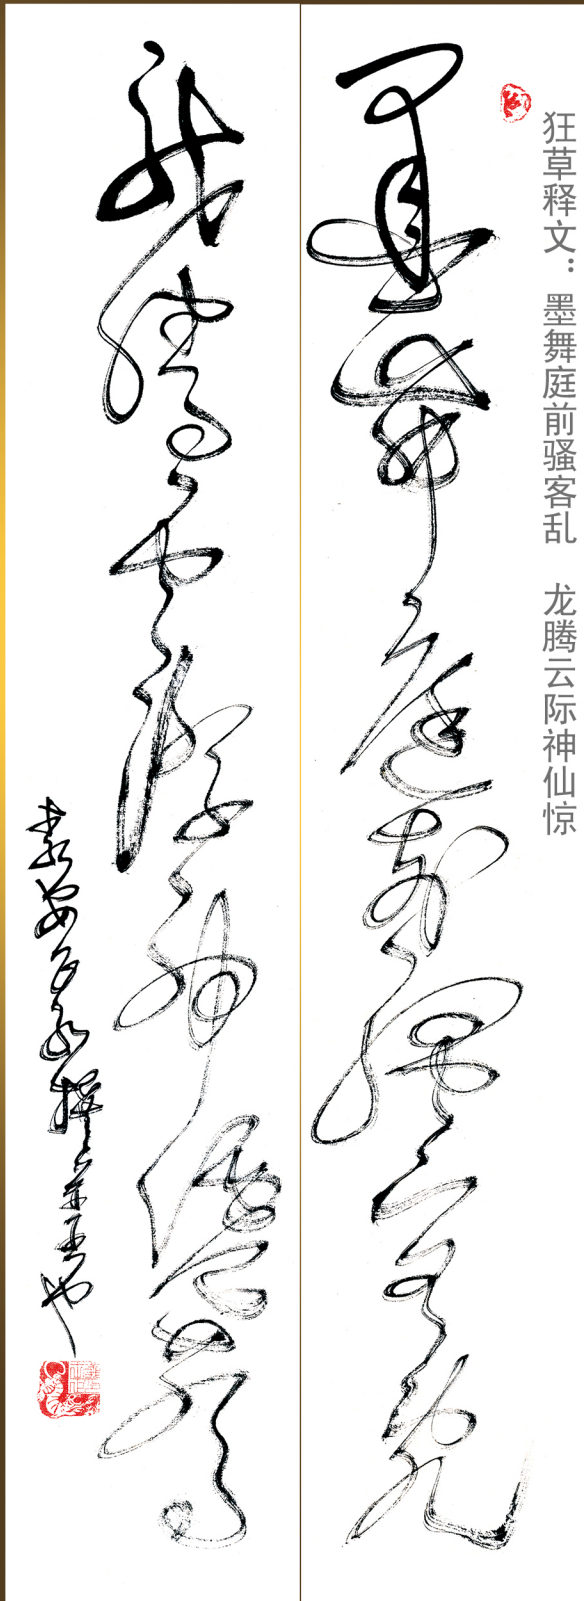 狂草释文：墨舞庭前骚客乱 龙腾云际神仙惊
墨舞庭前骚客乱
龙腾云际神仙惊